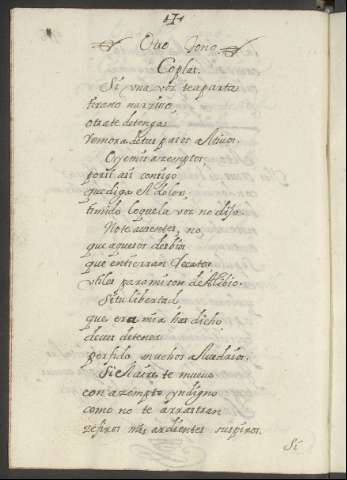 171
Otro Tono
Coplas.
Si vna voz te aparta
tirano narziso,
otra te detenga
Remora de tus pasos
Oye mis
por si asi consigo
que diga el dolor,
timido lo que la voz no dijo.
No te ausentes, no,
que aquesos desbios
que entierran
vtiles para mi son de Alibio.
Si tu libertad
que era mia has dicho
detener
perfido muchos Aluedrios.
Si el Aire te mueue
con azempto yndigno
como no te arrastran
zefiros mis ardientes suspiros.
Si